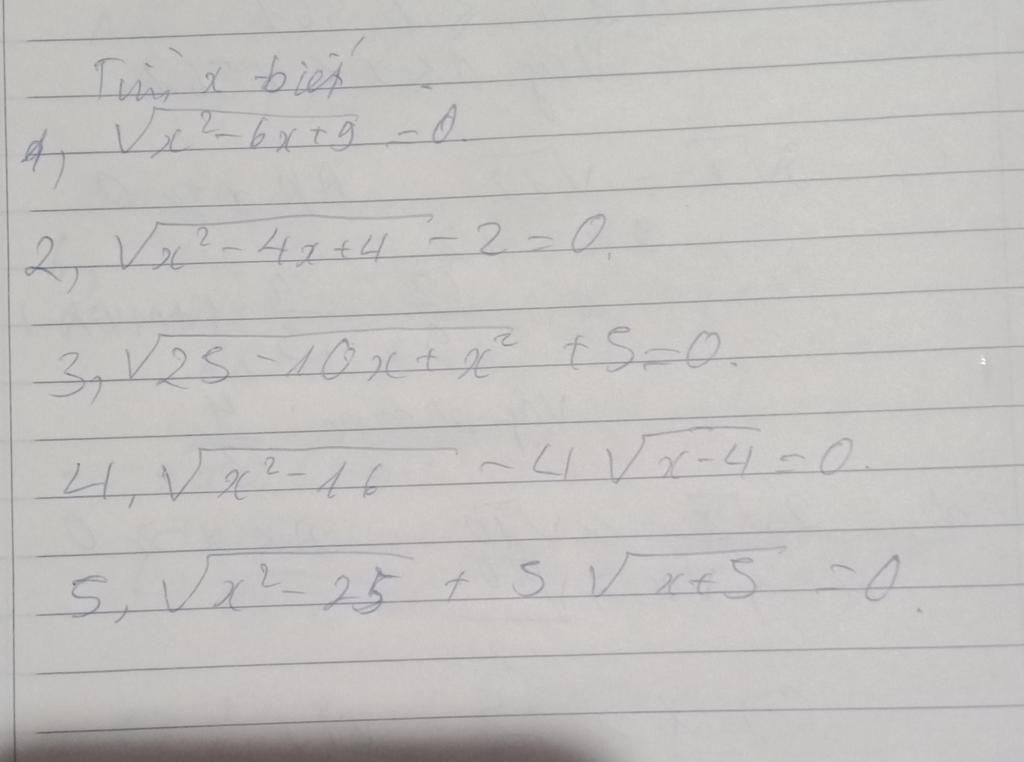 Tìm x biết
1, √x²-6x+9 = 0.
2, √x²-4x+4 - 2 = 0.
3, √25-10x+x² + 5 = 0.
4, √x²-16 - 4√x-4 = 0.
5, √x²-25 + 5√x+5 = 0.